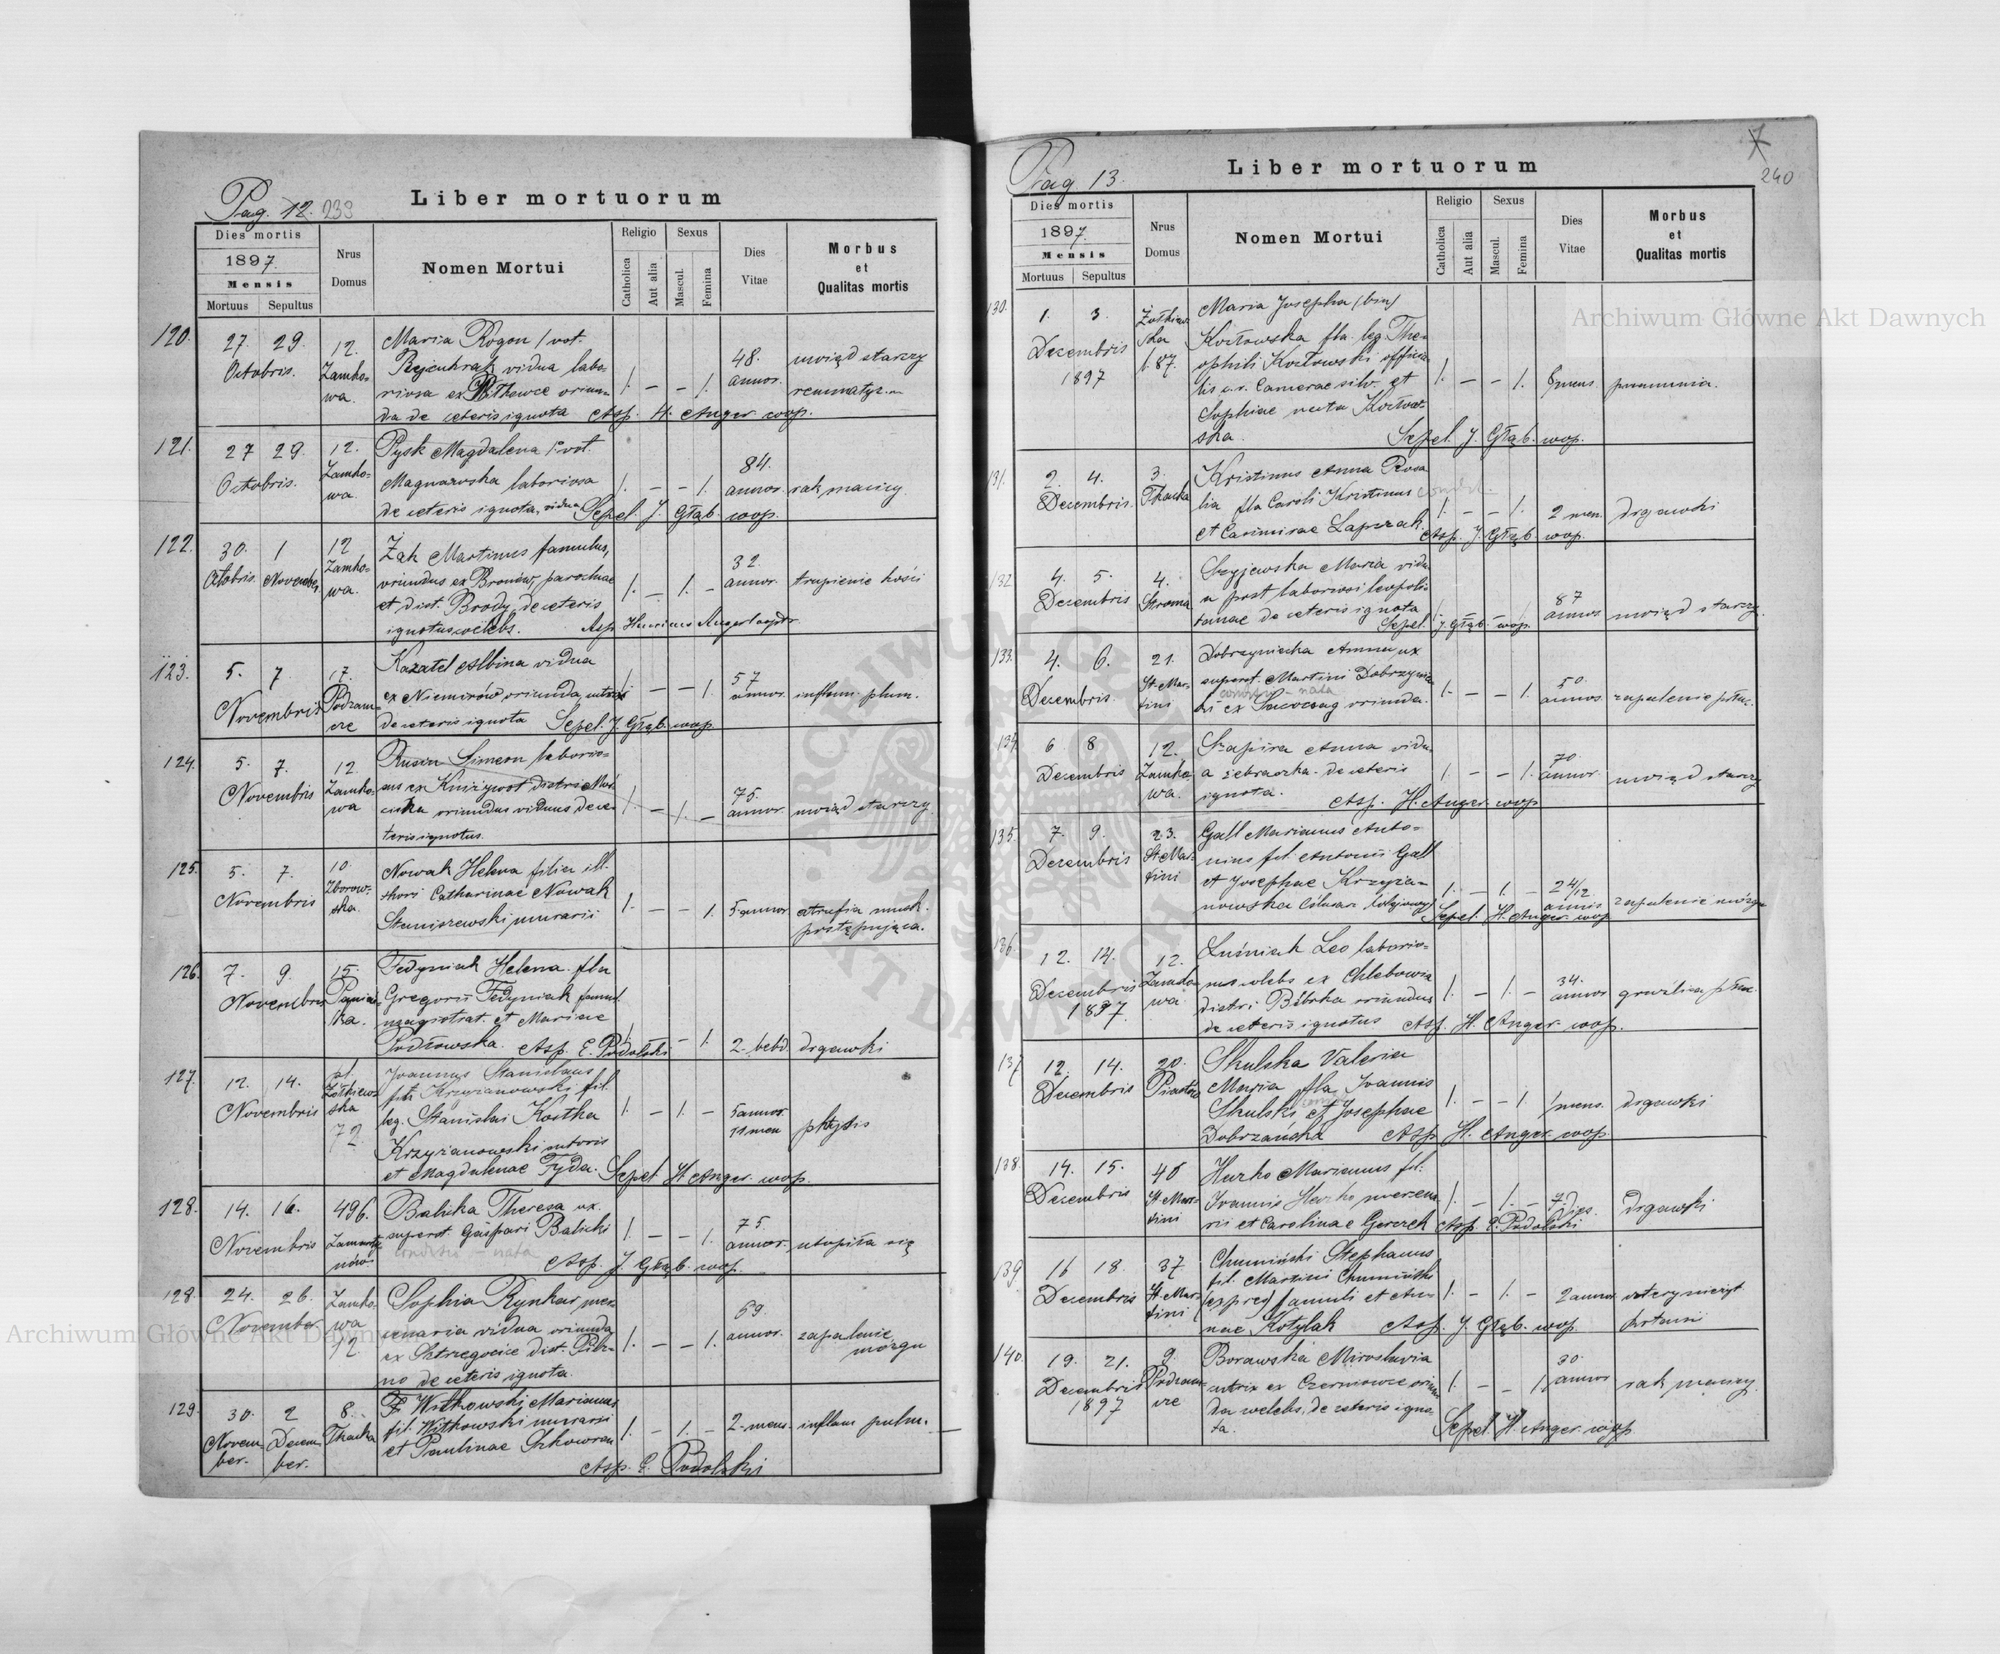 Pag. 12. 233
Liber mortuorum
Dies mortis
1897.
Mensis
Mortuus Sepultus
Nrus Domus
Nomen Mortui
Religio
Catholica
Aut alia
Sexus
Mascul.
Femina
Dies Vitae
Morbus
et
Qualitas mortis
120.
27. 29.
Octobris.
12.
Zamko-
wa.
Maria Rogon / vot.
vidua labo-
riosa ex oriun-
da de ceteris ignota Asp. H. Anger coop.
1. — — 1.
48.
annor.
uwiąd starczy
121.
27 29.
Octobris.
12.
Zamko-
wa.
Pysk Magdalena 1º vot.
Magnarowska laboriosa
de ceteris ignota, vidua Sepel. J. Głąb. coop.
1. — — 1.
84.
annor.
rak macicy
122.
30. 1
Octobris Novembr.
12
Zamko-
wa.
Żak Martinus famulus,
oriundus ex Broniów parochiae
et dist. Brody de ceteris
ignotus coelebs. Asp. Henricus Anger coop.
1. — 1. —
32.
annor.
trupienie kości
123.
5. 7.
Novembris
17.
Podzam-
cze
Kazatel Albina vidua
ex Niemirów oriunda,
de ceteris ignota Sepel. J. Głąb. coop.
1 — — 1.
57
annor.
inflam. plum.
124.
5. 7.
Novembris
12.
Zamko-
wa
Rusin Simeon laborio-
sus ex districtu Moś-
ciska oriundus viduus de ce-
teris ignotus.
1. — 1. —
75.
annor.
uwiąd starczy
125.
5. 7.
Novembris
10
Zborow-
ska.
Nowak Helena filia ill.
thori Catharinae Nowak
Staniszewski murarii
1. — — 1.
5 annor
atrofia musk.
postępująca.
126.
7. 9.
Novembris
15.
Fedyniak Helena fla
Gregorii Fedyniak famul.
magistrat. et Mariae
Podłowska. Asp. E. Podolski
1 — 1.
2. hebd.
drgawki
127.
12. 14.
Novembris
Żółkiew-
ska
72.
Joannes Stanislaus
Krzyżanowski fil.
leg. Stanislai Kostka
Krzyżanowski sutoris
et Magdalenae Tyda. Sepel. H. Anger. coop.
1. — 1. —
5 annor.
11 men
phtysis
128.
14. 16.
Novembris
496.
Zamarsty-
nów
Balicka Theresa ux.
superst. Gaspari Balicki
nata
Asp. J. Głąb. coop.
1. — — 1.
75.
annor.
utopiła się
129.
24. 26.
November
Zamko-
wa
12.
Sophia Rynkar mer-
cenaria vidua oriunda
ex Strzegocice dist. Pilz-
no de ceteris ignota.
1. — — 1.
69.
annor.
zapalenie
mózgu
129.
30. 2
Novem- Decem-
ber. ber.
8.
Tkacka
Witkowski Marianus
fil. Witkowski murarii
et Paulinae Szkowron
Asp. E. Podolski
1. — 1. —
2. mens.
inflam pulm.
Pag. 13.
7
240
Liber mortuorum
Dies mortis
1897.
Mensis
Mortuus Sepultus
Nrus
Domus
Nomen Mortui
Religio
Catholica
Aut alia
Sexus
Mascul.
Femina
Dies
Vitae
Morbus
et
Qualitas mortis
130.
1. 3.
Decembris
1897
Żółkiew-
ska
l. 87.
Maria Josepha (bin)
Kozłowska fla. leg. The-
ophili Kozłowski officia-
lis c. r. Camerae silv. et
Sophiae nata Kozłow-
ska. Sepel. J. Głąb. coop.
1. — — 1.
mens.
pneumonia.
131.
2. 4.
Decembris.
3.
Tkacka
Kristinus Anna Rosa
lia fla Caroli Kristinus
et Casimirae Lapczak. Asp. J. Głąb coop.
1. — — 1.
2 men.
drgawki
132
4. 5.
Decembris
4.
Stroma
Szyjewska Maria vidu-
a post laboriosi leopoli-
tanae de ceteris ignota
Sepel. J. Głąb. coop.
87
annor.
uwiąd starczy.
133.
4. 6.
Decembris.
21.
St. Mar-
tini
Dobrzyniecka Anna ux
superst. Martini Dobrzynie-
nata
cki ex oriunda.
1. — — 1.
50.
annor.
zapalenie płuc.
134.
6. 8
Decembris
12.
Zamko-
wa.
Szapira Anna vidu-
a żebraczka. de ceteris
ignota. Asp. H. Anger. coop
1. — — 1.
70
annor.
uwiąd starczy
135.
7. 9.
Decembris
23.
St. Mar-
tini
Gall Marianus Anto-
nius fil. Antonii Gall
et Josephae Krzyża-
nowska
Sepel. H. Anger. coop
1. — 1. —
2 4/12
annis
zapalenie mózgu
136.
12. 14.
Decembris
1897.
12.
Zamko-
wa.
Luśniak Leo laborio-
sus coelebs ex Chlebowia
distri. Bóbrka oriundus
de ceteris ignotus Asp. H. Anger. coop.
1. — 1. —
34.
annor
gruźlica płuc.
137
12. 14.
Decembris
20.
Piastów
Skulska Valeria
Maria fla Joannis
Skulski et Josephae
Dobrzańska Asp H. Anger. coop.
1. — — 1
1 mens.
drgawki
138.
14. 15.
Decembris
46
St. Mar-
tini
Hurko Marianus fil.
Joannis Hurko mercena-
rii et Carolinae Gerczek Asp. E. Podolski
1. — 1. —
7 dies.
drgawki
139
16 18.
Decembris
37
St. Mar-
tini
Chumiński Stephanus
fil. Martini Chumiński
famuli et An-
nae Kotylak Asp. J. Głąb. coop.
1. — 1. —
2 annor
ostry nieżyt
krtani
140.
19. 21.
Decembris
1897
9.
Podzam-
cze
Borawska Miroslavia
nutrix ex Czerniowce oriun-
da coelebs, de ceteris igno-
ta. Sepel. H. Anger. coop
1. — — 1.
30.
annor
rak macicy.
Archiwum Główne Akt Dawnych
Archiwum Główne Akt Dawnych
ARCHIWUM GŁÓWNE AKT DAWNYCH